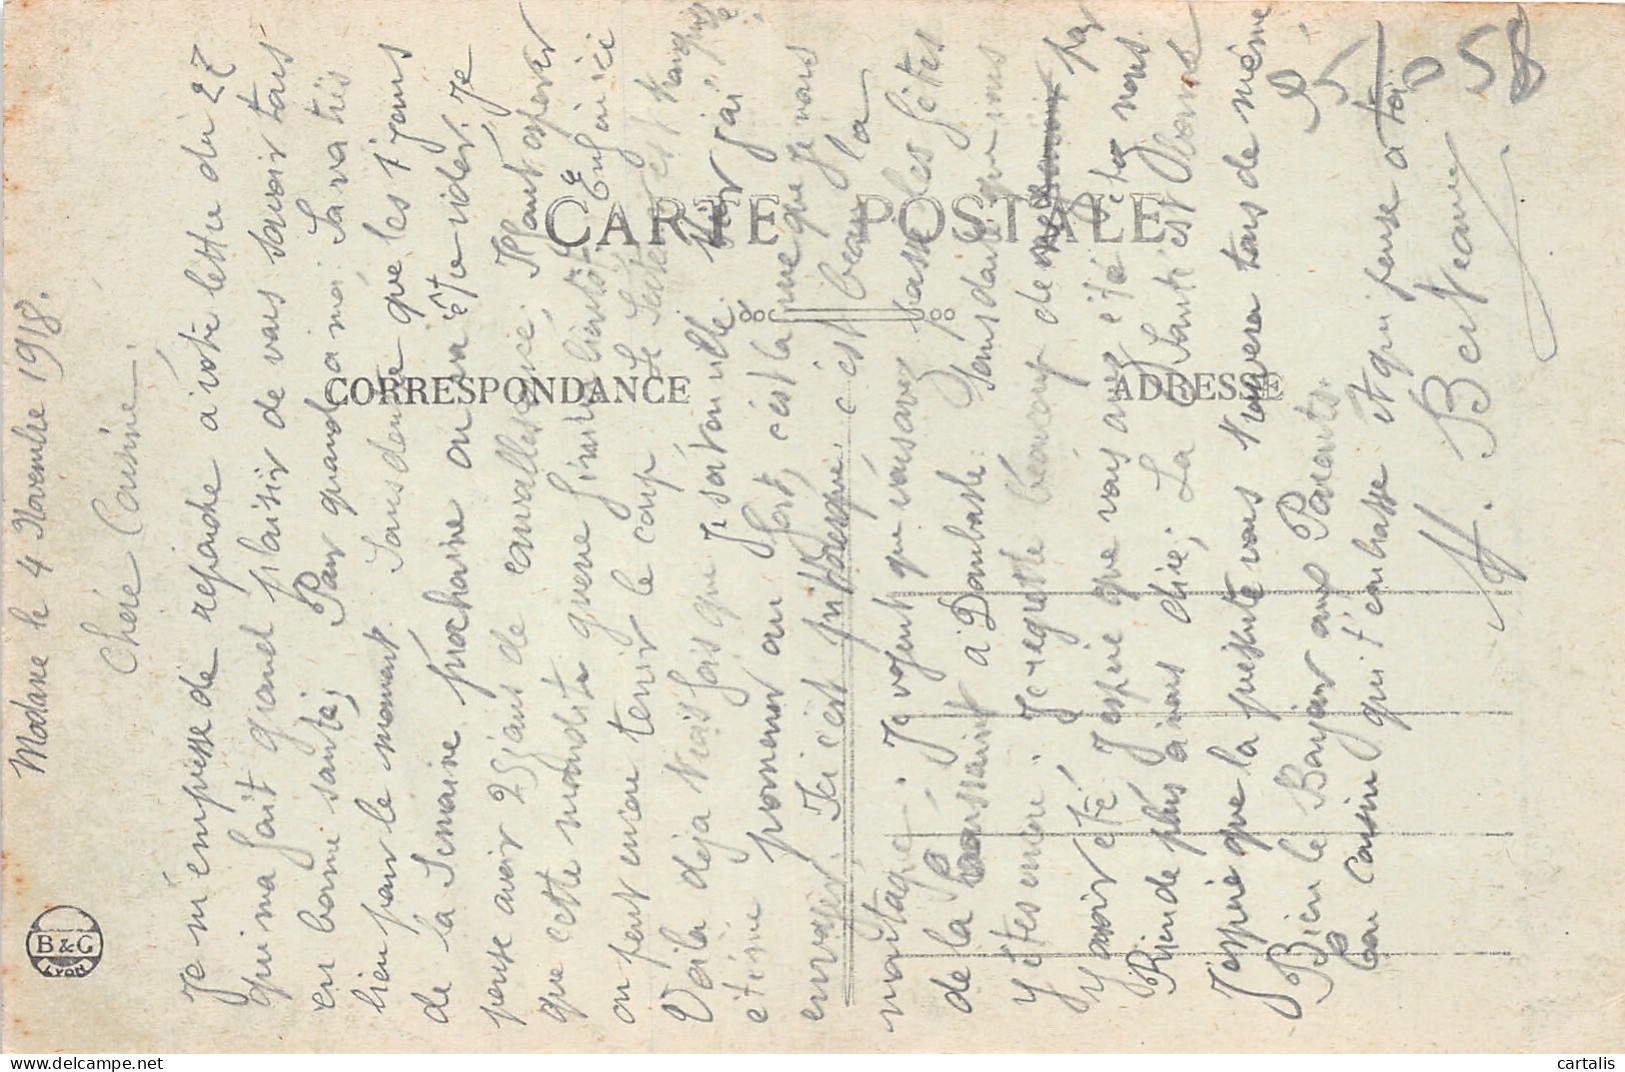 Modane le 4 Novembre 1918.
Chère Cousine.
Je m'empresse de reponche a votre lettre du 27
qui ma fait grand plaisir de vous savoir tous
en bonne santé, Pour quand a moi Sa va très
bien pour le moment. Sans doute que les 8 jours
de la Semaine prochaine on va être vider. Je
pense avoir 25 jours de convallessence, Il faut esperer
que cette maudite guerre finira bientôt Enfin ici
on peut encore tenir le coup le Secteur est tranquille
Voila deja trois fois que je sort en ville hier j'ai
étéme promener au fort, c'est la vue que je vous
envoyer. Ici c'est pittoresque. c'est beau la
montagne. Je voient que vous avez passé les fêtes
de la Toussaint a Dombasle. Sans doute que vous
y êtes encore. Je regrette beaucoup de pas
y avoir été J'espere que vous avez été chez nous.
Rien de plus a vous dire; La Santé est bonne
J'espere que la presente vous trouvera tous de même
Bien le Bonjour aux Parents.
Ton Cousin qui t'embrasse et qui pense a toi
H. Berveaux
058
CARTE POSTALE
CORRESPONDANCE
ADRESSE
B & G
LYON
cartalis